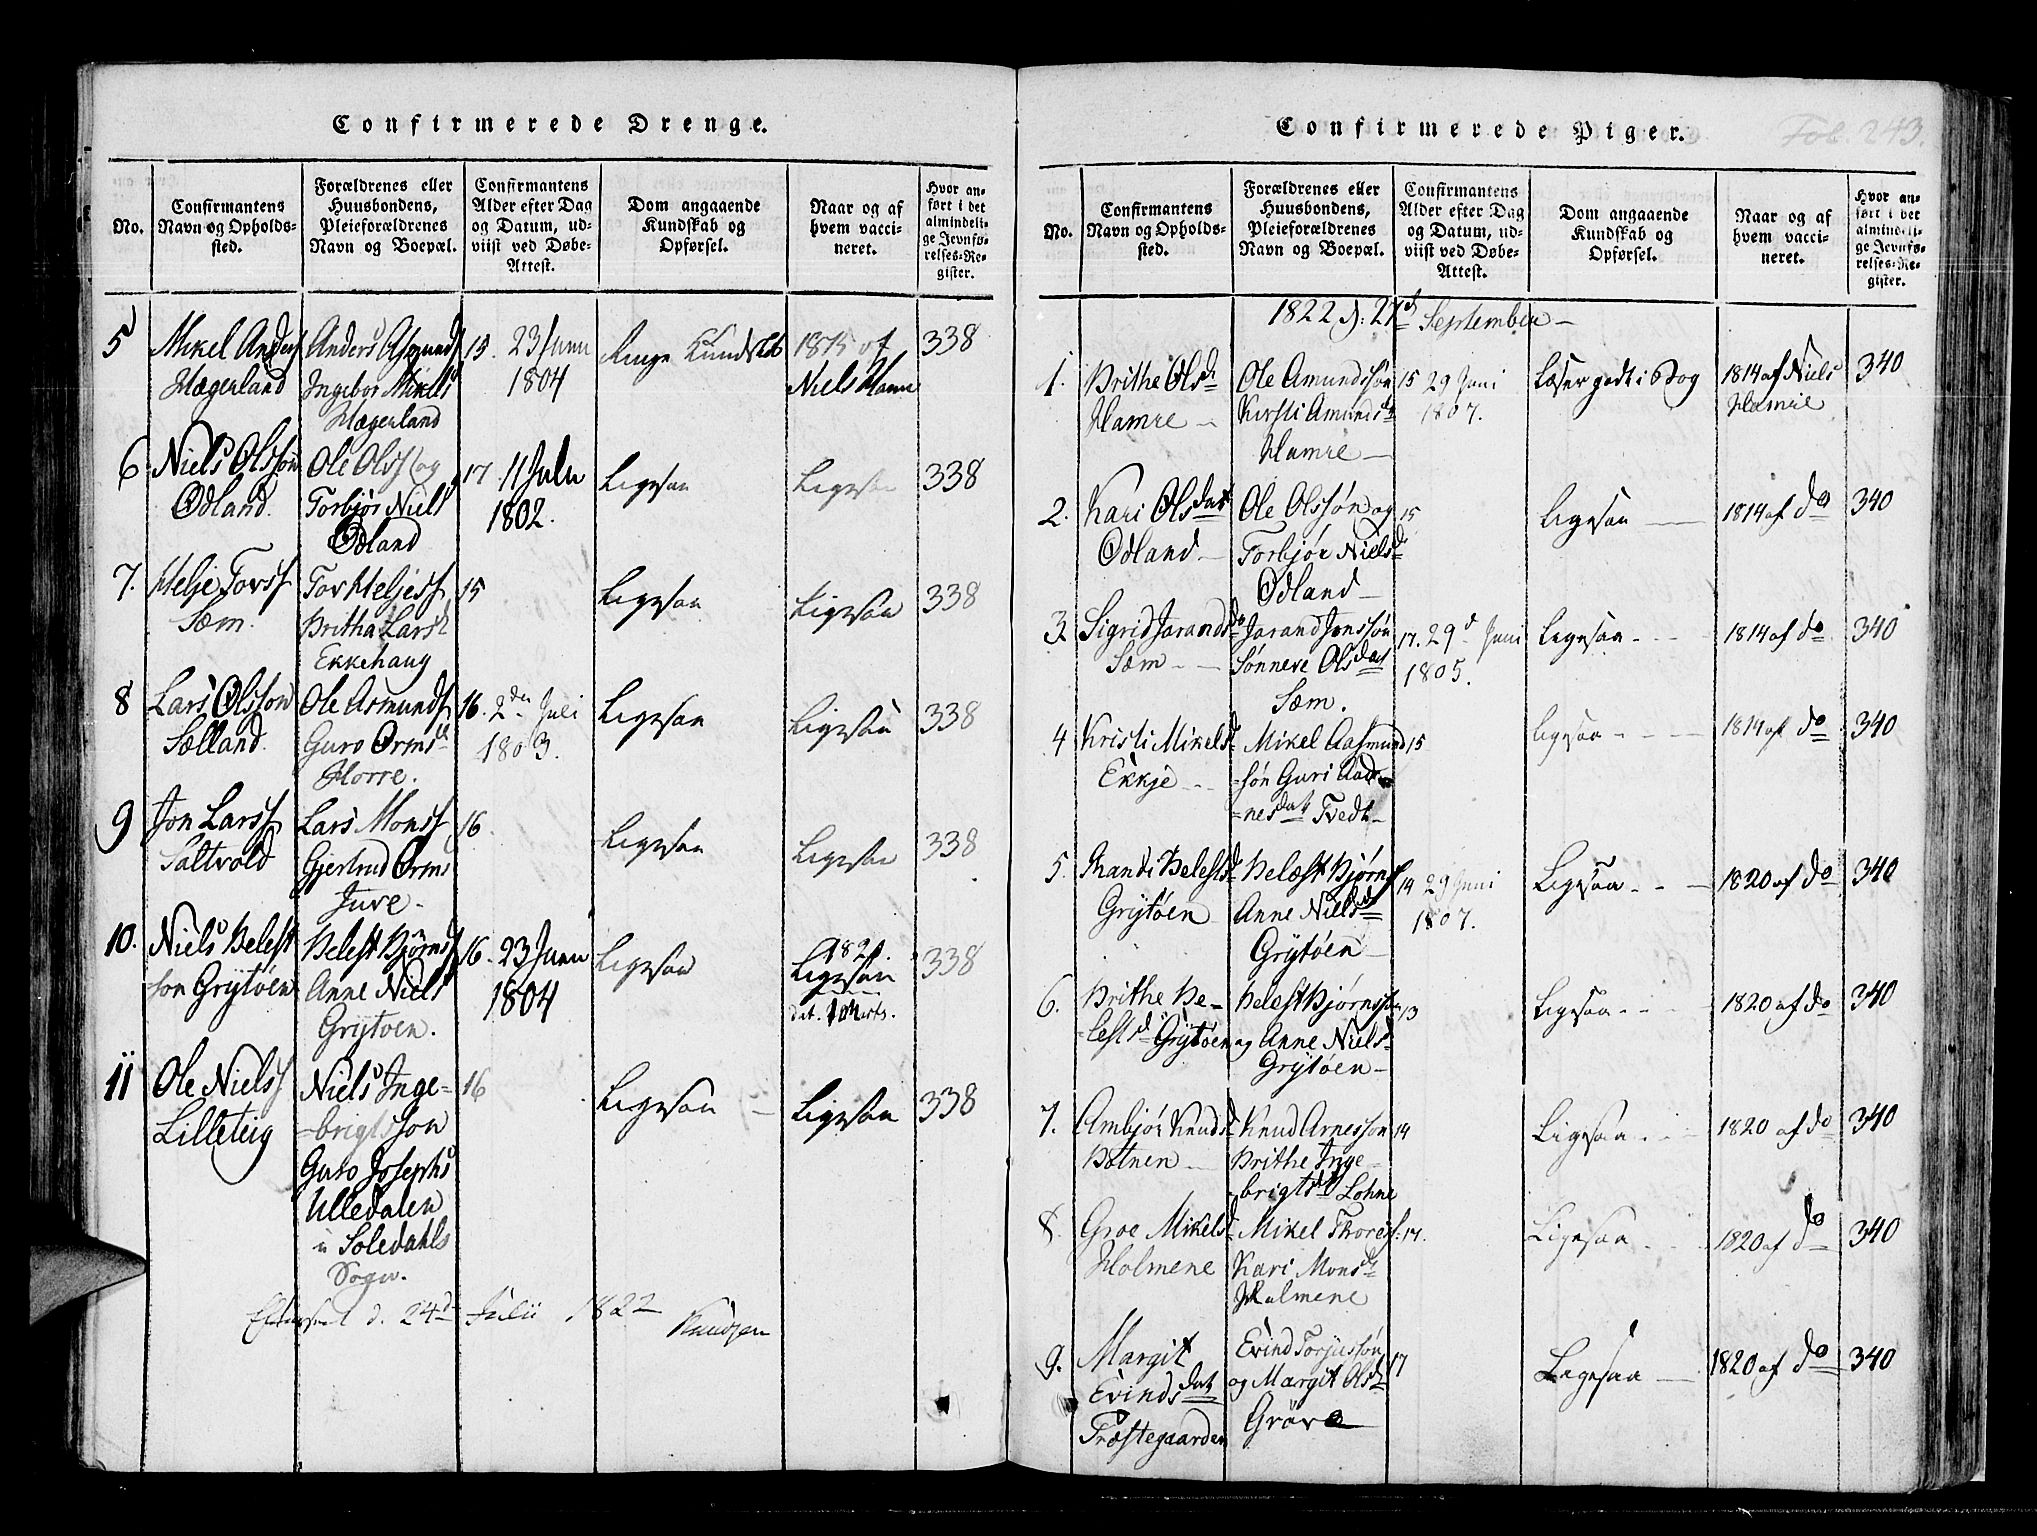 Confirmerede Drenge.
No.
Confirmantens
Navn og Opholds-
sted.
Forældrenes eller
Huusbondens,
Pleieforældrenes
Navn og Boepæl.
Confirmantens
Alder efter Dag
og Datum, ud-
viist ved Døbe-
Attest.
Dom angaaende
Kundskab og
Opførsel.
Naar og af
hvem vacci-
neret.
Hvor an-
ført i det
almindeli-
ge Jevnfø-
relses-Re-
gister.
5
Mikel Anders
Hægerland
Anders Asmunds
Ingebor Mikels
Hægerland
15. 23 Juni
1804
Ringe Kundskab
1815 af
Niels Hamre
338
6
Niels Olsson
Odland.
Ole Olss og
Torbjør Niels
Odland
17. 11 Juli
1802.
Ligesaa
Ligesaa
338
7.
Helje Torss
Sæm.
Tor Heljess
Britha Larsd
Ekkehaug
15
Ligesaa
Ligesaa
338
8
Lars Olsson
Sælland.
Ole Asmunds
Guro Ormsd
Horre.
16. 2den Juli
1803.
Ligesaa
Ligesaa
338
9
Jon Larss
Saltvold
Lars Monss
Gjertrud Orms
Juve.
16
Ligesaa
Ligesaa
338
10.
Niels Belest
son Grytøen
Belest Bjørns
Anne Niels
Grytøen.
16. 23 Juni
1804
Ligesaa
1821.
Ligesaa
dat. 1 Marts.
338
11
Ole Nielss
Lilleteig
Niels Inge-
-brigtsson
Guro Josephs
Ulledalen
i Soledahls
Sogn.
16
Ligesaa
Ligesaa
338
Efterseet d. 24d Julii 1822 Knudzen
Confirmerede Piger.
Fol. 243.
No.
Confirmantens
Navn og Opholds-
sted.
Forældrenes eller
Huusbondens,
Pleieforældrenes
Navn og Boepæl.
Confirmantens
Alder efter Dag
og Datum, ud-
viist ved Døbe-
Attest.
Dom angaaende
Kundskab og
Opførsel.
Naar og af
hvem vacci-
neret.
Hvor an-
ført i det
almindeli-
ge Jevnfø-
relses-Re-
gister.
1822 d: 27d September
1.
Brithe Olsd
Hamre
Ole Amundsson
Kirsti Amundsd
Hamre
15 29 Juni
1807.
Læser godt i Bog
1814 af Niels
Hamre
340
2.
Kari Olsdat
Odland
Ole Olssøn og
Torbjør Nielsd
Odland
15
Ligesaa
1814 af do
340
3
Sigrid Jarandsd
Sæm
Jarand Jonssøn
Sønneve Olsdat
Sæm.
17. 29d Juni
1805.
Ligesaa
1814 af do
340
4
Kristi Mikelsd
Ekkje
Mikel Aasmund
-søn Guri Aad-
-nesdat Tvedt
15
Ligesaa
1814 af do
340
5.
Randi Belestsd
Grytøen
Belæst Bjørns
Anne Nielsd
Grytøen
14 29 Juni
1807.
Ligesaa
1820 af do
340
6.
Brithe Be-
-lestsd Grytøen
Belest Bjørnsson
og Anne Nielsd
Grytøen
13
Ligesaa
1820 af do
340
7.
Ambjør Knudsd
Botnen
Knud Arnesson
Brithe Inge-
brigtsd Lohne
14
Ligesaa
1820 af do
340
8.
Groe Mikelsd
Holmene
Mikel Thoress:
Kari Monsd
Holmene
17.
Ligesaa
1820 af do
340
9.
Margit
Evindsdat
Præstegaarden
Evind Torjussøn
og Margit Olsd
Grøve
17
Ligesaa
1820 af do
340